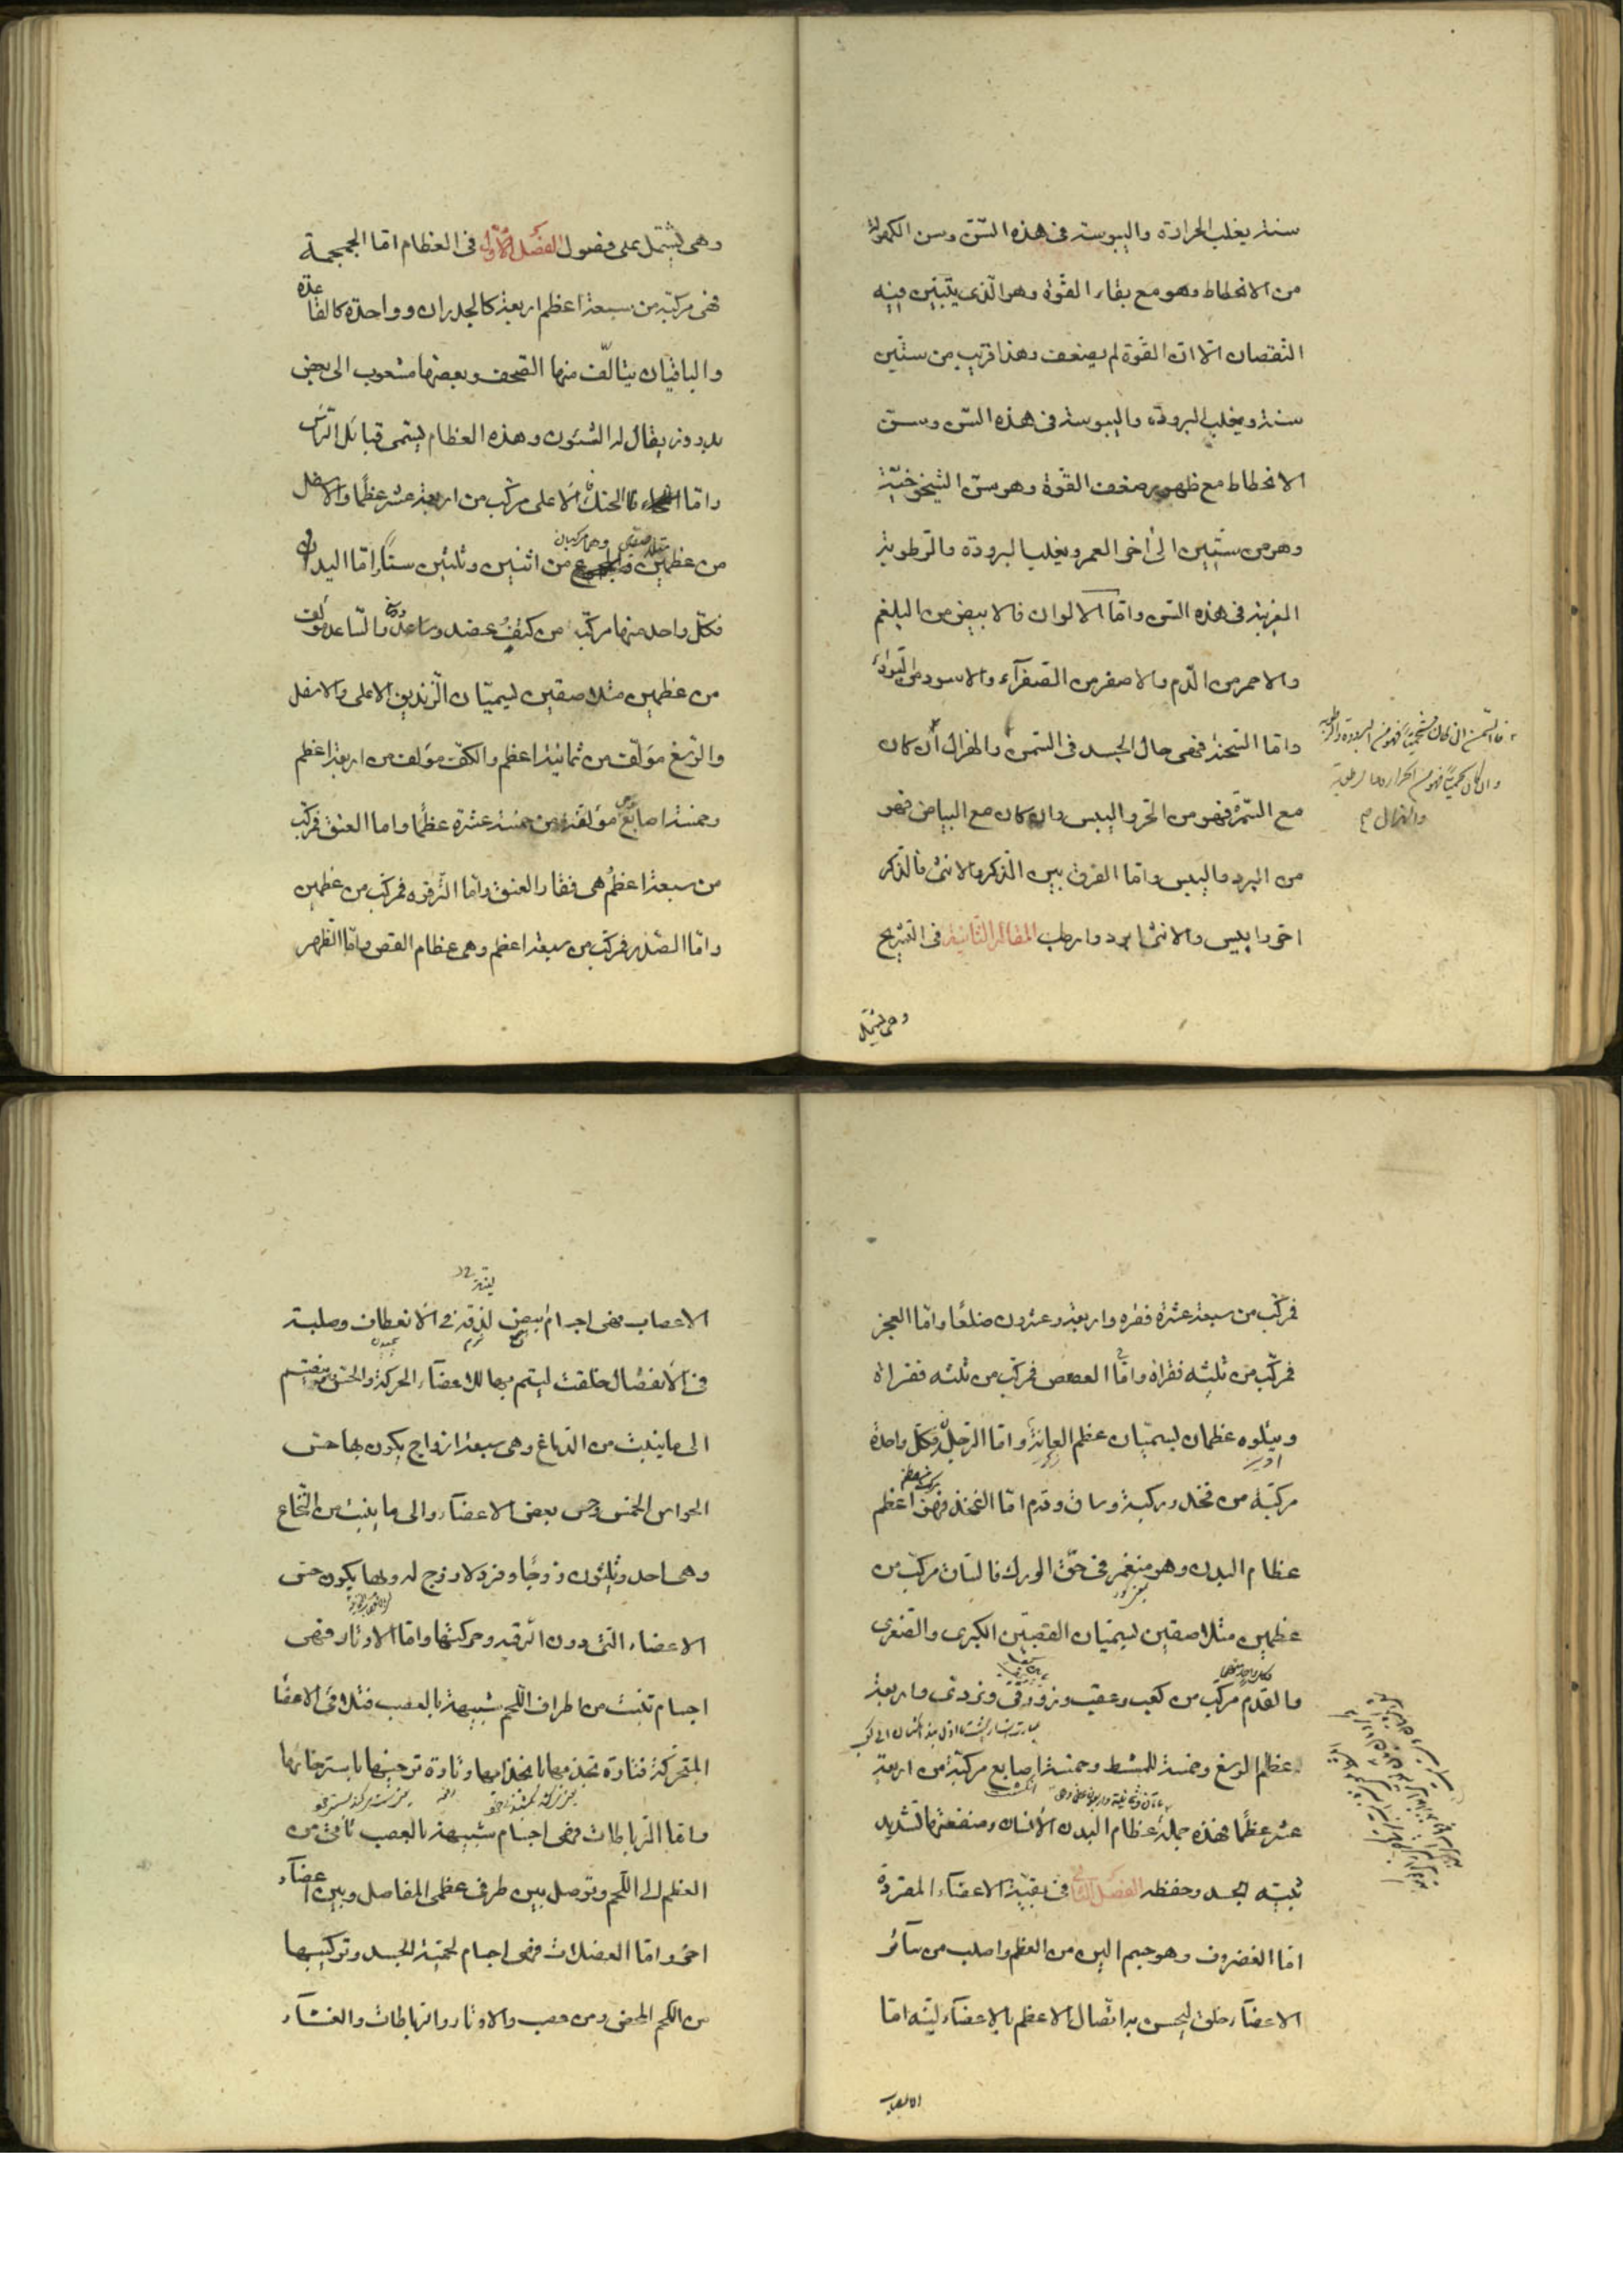 سنة يغلب الحرارة واليبوسة فى هذه السّن وسن الكهولة
من الانحطاط وهو مع بقاء القوّة وهو الّذى يتبيّن فيه
النّقصان الّا انّ القوّة لم يضعف وهذا قريب من ستّين
سنة ويغلب البرودة واليبوسة فى هذه السّن وسنّ
الانحطاط مع ظهور ضعف القوّة وهو سنّ الشيخوخيّة
وهو من ستّين الى آخر العمر ويغلب البرودة والرّطوبة
الغريبة فى هذه السّن وامّا الالوان فالابيض من البلغم
والاحمر من الدّم والاصفر من الصّفرآء والاسود من السّودآء
وامّا السّحنة فهى حال الجسد فى السّمن والهزال ان كان
مع السّمرة فهو من الحرّ واليبس وان كان مع البياض فهو
من البرد واليبس وامّا الفرق بين الذّكر والانثى فالذّكر
احرّ وايبس والانثى ابرد وارطب المقالة الثّانية فى التّشريح
وهى يشتمل
فالسّمن ان كان شحميّا فهو من البرودة والرطوبة
وان كان لحميّا فهو من الحرارة والرطوبة
والهزال صح
وهى يشتمل على فصول الفصل الاوّل فى العظام امّا الجمجمة
فهى مركّبة من سبعة اعظم اربعة كالجدران وواحدة كالقاعدة
والباقيان يتألّف منها القحف وبعضها مشعوب الى بعض
بدروز يقال له الشئون وهذه العظام يسمّى قبائل الرّاس
وامّا فالحنك الاعلى مركّب من اربعة عشر عظمًا والاسفل
من عظمين وهما مركبان من اثنين وثلثين سنًّا وامّا اليدان
فكلّ واحد منها مركّب من كتف وعضد وساعد ورسغ والسّاعد مؤلّف
من عظمين متلاصقين يسمّيان الزّندين الاعلى والاسفل
والرّسغ مؤلّف من ثمانية اعظم والكفّ مؤلف من اربعة اعظم
وخمسة اصابع وهى مؤلّفة من خمسة عشرة عظمًا وامّا العنق فمركّب
من سبعة اعظم هى فقار العنق وامّا التّرقوه فمركّب من عظمين
وامّا الصّدر فمركّب من سبعة اعظم وهى عظام القص وامّا الظهر
فمركّب من سبعة عشرة فقره واربعة وعشرون ضلعًا وامّا العجز
فمركّب من ثلثة فقراة وامّا العصعص فمركّب من ثلثه فقراة
ويتلوه عظمان يسمّيان عظم العانة وامّا الرّجلان فكلّ واحدة
مركّبة من فخذ وركبة وساق وقدم امّا الفخذ فهو اعظم
عظام البدن وهو منغمز فى حقّ الورك فالسّاق مركّب من
عظمين متلاصقين يسمّيان القصبتين الكبرى والصّغرى
والقدم مركّب من كعب وعقب وزورقى ونردى واربعة
عظام الرسغ وخمسة للمشط وخمسة اصابع مركّبة من اربعة
عشر عظمًا فهذه جملة عظام البدن الانسان ومنفعتها تشديد
ثبتيه الجسد وحفظه الفصل الثّانى فى بقيّة الاعضآء المفردة
امّا الغضروف وهو جسم الين من العظم واصلب من سآئر
الاعضآء خلق ليحسن به اتّصال الاعظم بالاعضآء ليّنه امّا
امّا الاعصاب
الاعصاب فهى اجرام بيض لدنة فى الانعطاف وصلبة
فى الانفصال خلقت ليتم بها للاعضآء الحركة والحسّ وينقسم
الى ما ينبت من الدّماغ وهى سبعة ازواج يكون بها حسّ
الحواس الخمس وحسّ بعض الاعضآء والى ما ينبت من النّخاع
وهى احد وثلثون زوجًا وفرد لا زوج له وبها يكون حسّ
الاعضاء التى دون الرّقبه وحركتها وامّا الاوتار فهى
اجسام تنبت من اطراف اللّحم شبيهة بالعصب فتلاقى الاعضآء
المتحرّكة فتارة تجذبها بانجذابها وتارة ترخيها باسترخائها
وامّا الرّباطات فهى اجسام شبيهة بالعصب تأتى من
العظم الى اللّحم وتوصل بين طرفى عظمى المفاصل وبين اعضآء
اخر وامّا العضلات فهى اجسام لحميّة الجسد وتركيبها
من اللّحم المحض ومن عصب والاوتار والرّباطات والغشآء